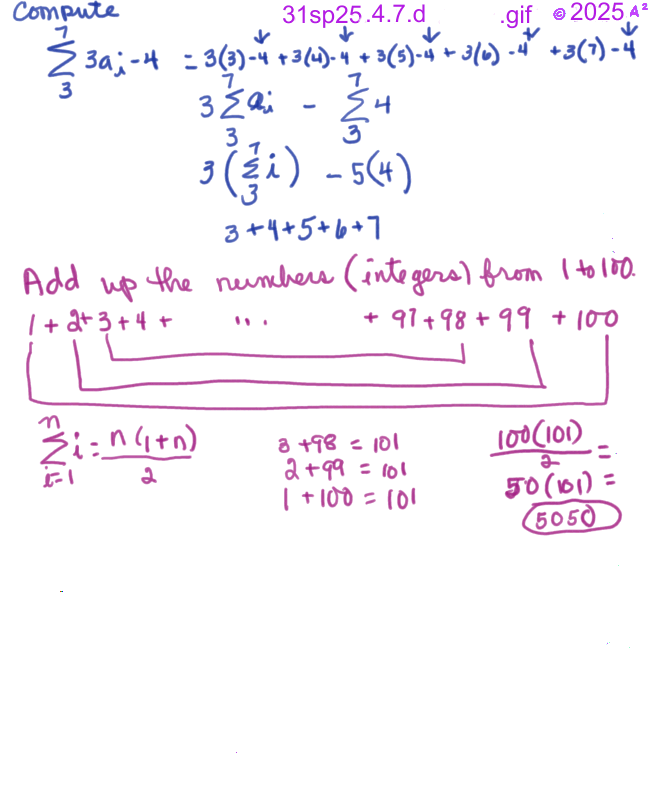 Compute 31sp25.4.7.d .gif © 2025 A²
7
∑ 3aᵢ-4 = 3(3)-4 + 3(4)-4 + 3(5)-4 + 3(6)-4 + 3(7)-4
3
7 7
3 ∑ aᵢ - ∑ 4
3 3
3 ( 7 ∑ 3 i ) - 5(4)
3+4+5+6+7
Add up the numbers (integers) from 1 to 100.
1 + 2 + 3 + 4 + ... + 97 + 98 + 99 + 100
n
∑ i = n(1+n) / 2
i=1
3 + 98 = 101
2 + 99 = 101
1 + 100 = 101
100(101) / 2 =
50(101) =
5050